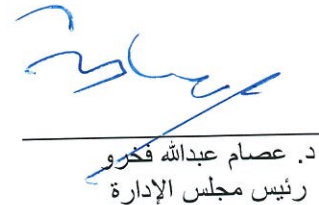 د. عصام عبدالله فخرو
رئيس مجلس الإدارة